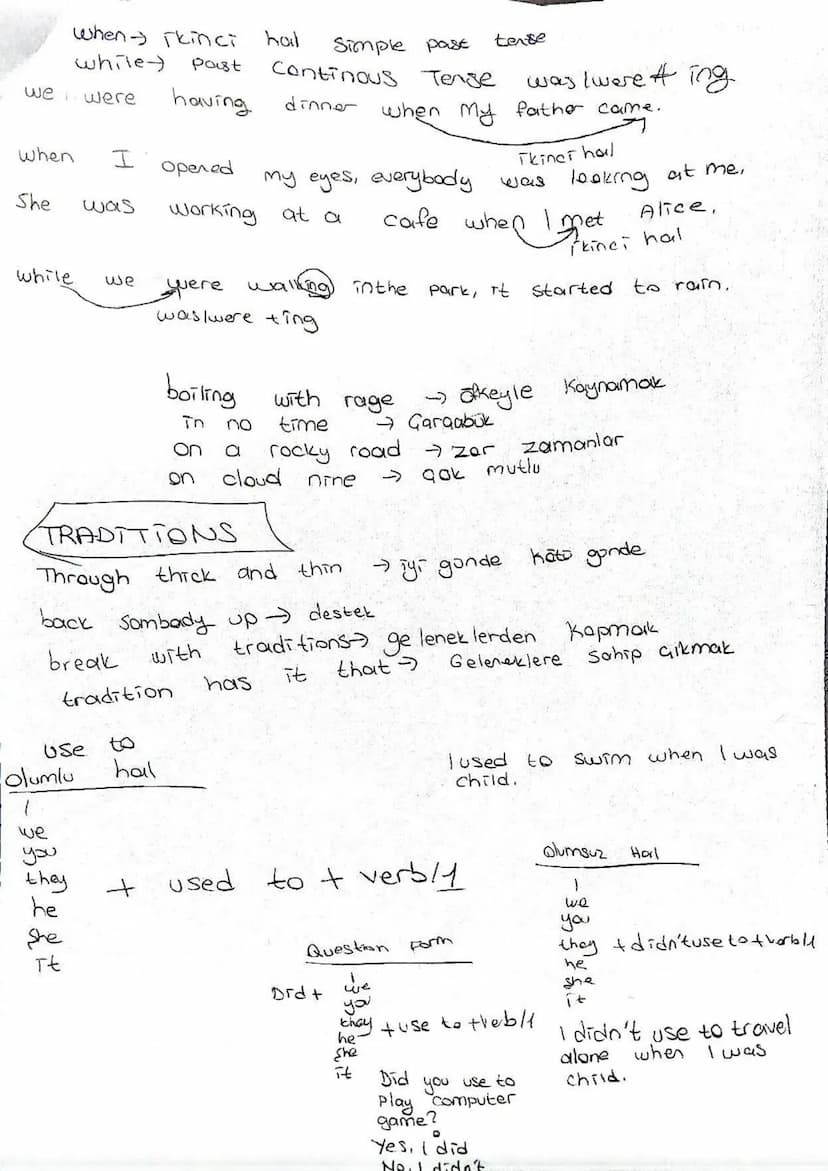 when→ ikinci hal simple past tense
while→ past continous Tense was/were + ing
we were having dinner when My father came.
ikinci hal
when I opened my eyes, everybody was looking at me.
She was working at a cafe when I met Alice.
ikinci hal
while we were walking in the park, it started to rain.
was/were +ing
boiling with rage → öfkeyle kaynamak
in no time → Çarçabuk
on a rocky road → zor zamanlar
on cloud nine → çok mutlu
TRADITIONS
Through thick and thin → iyi günde kötü günde
back sombady up → destek
break with traditions→ geleneklerden kopmak
tradition has it that→ Geleneklere sahip çıkmak
use to
Olumlu hal
I
we
you
they + used to + verb/1
he
she
it
I used to swim when I was
child.
Olumsuz Hal
I
we
you
they + didn't use to +verb/1
he
she
it
I didn't use to travel
alone when I was
child.
Question Form
Did +
I
we
you
they + use to +verb/1
he
she
it
Did you use to
Play computer
game?
Yes, I did
No, I didn't